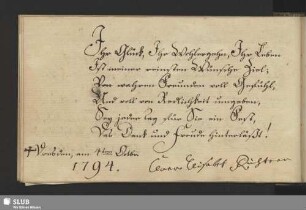 Ihr Glück, Ihr Wohlergehn, Ihr Leben
Ist meiner reinsten Wünsche Ziel;
Von wahren Freunden voll Gefühl,
Und voll von Redlichkeit umgeben,
Sey jeder Tag für Sie ein Fest,
Das Dank und Freude hinterläßt!
Dresden, am 4ten
1794.
SLUB